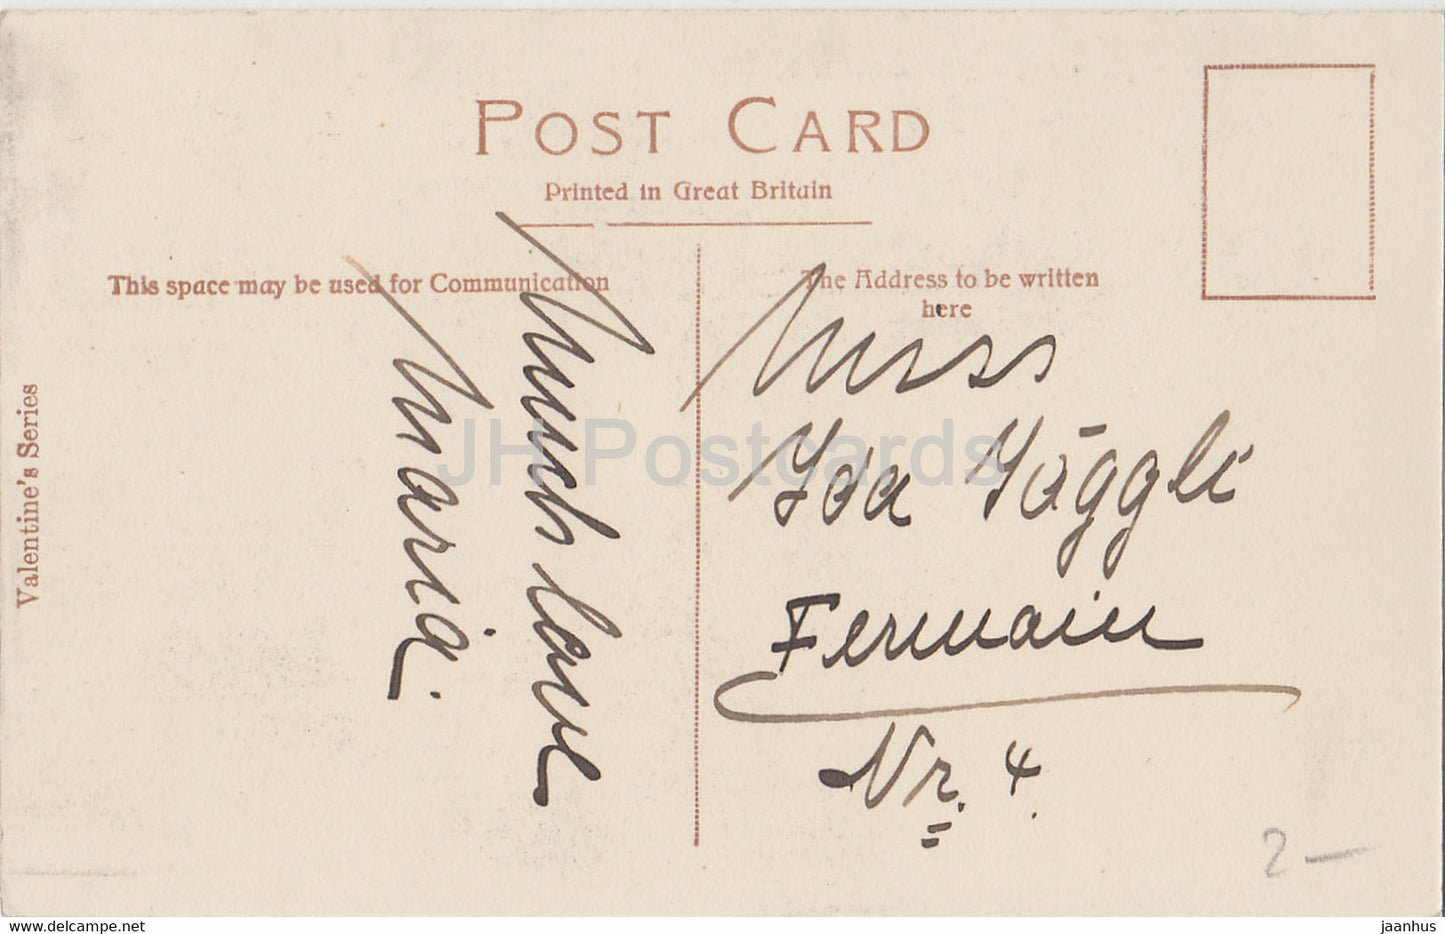 POST CARD
Printed in Great Britain
This space may be used for Communication
The Address to be written
here
Valentine's Series
much love
Maria.
Miss
Ida Göggli
Fermain
Nr. 4.
2-
JH Postcards
www.delcampe.net
jaanhus